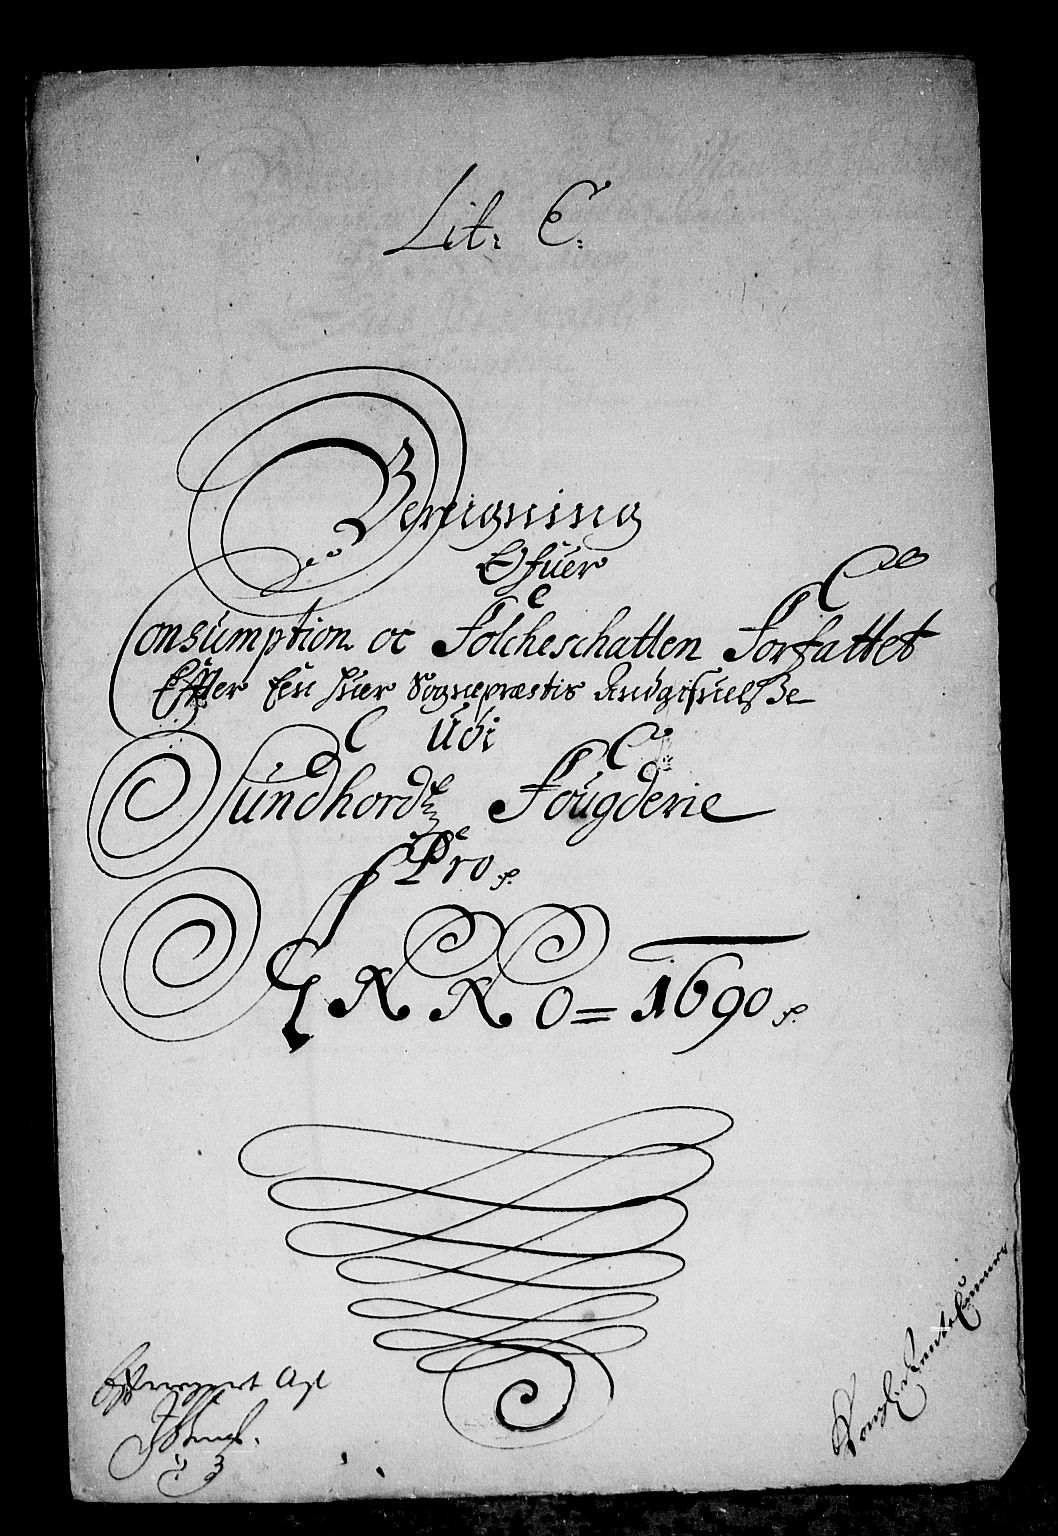 Lit: C:
Bereigning
Ofuer
Consumption oc Folcheschatten Forfattet
Effter Een huer Sognepræstis Andgifuelsße
Udi
Sundhordz Fougderie
Pro
ANNO = 1690